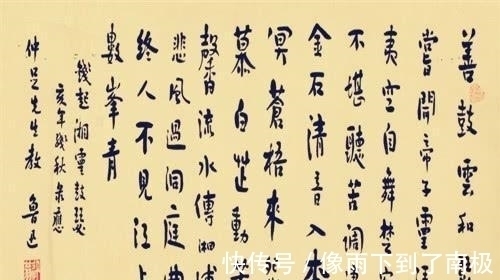 善鼓雲和
嘗聞帝子靈
夷空自舞楚
不堪聽苦調
金石清音入
冥蒼梧來
慕白芷動
馨香流水傳湘浦
悲風過洞庭曲
終人不見江上
數峯青
錢起湘靈鼓瑟
亥年殘秋錄應
仲足先生教 魯迅
快传号 / 像雨下到了南极